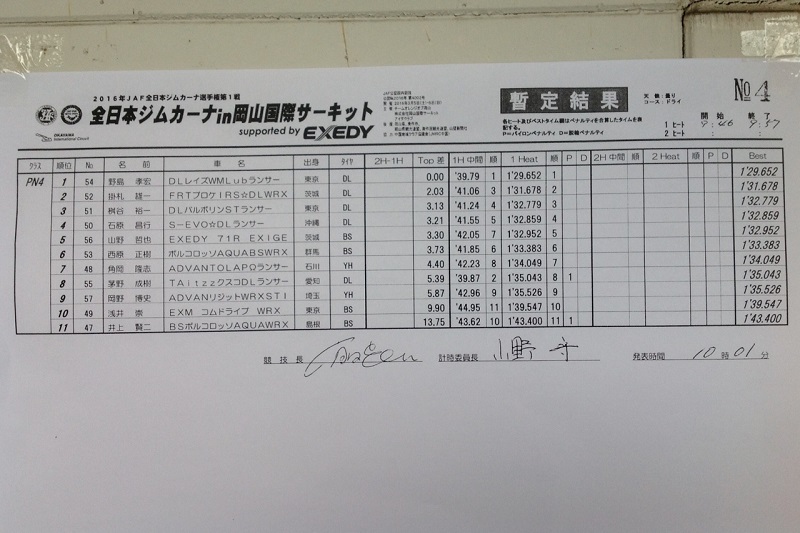 No 4
2016年JAF全日本ジムカーナ選手権第1戦
全日本ジムカーナin岡山国際サーキット
supported by EXEDY
暫定結果
天候:曇り
コース:ドライ
各ヒート及びベストタイム欄はペナルティを合算したタイムを表記する。
P=パイロンペナルティ D=脱輪ペナルティ
開始 終了
1 ヒート 9:46 9:57
2 ヒート : :
クラス 順位 No 名前 車名 出身 タイヤ 2H-1H Top 差 1H 中間 順 1 Heat 順 P D 2H 中間 順 2 Heat 順 P D Best
PN4 1 54 野島 孝宏 DLレイズWMLubランサー 東京 DL 0.00 '39.79 1 1'29.652 1 1'29.652
2 52 掛札 雄一 FRTプロケIRS☆DLWRX 茨城 DL 2.03 '41.06 3 1'31.678 2 1'31.678
3 51 桝谷 裕一 DLバルボリンSTランサー 東京 DL 3.13 '41.24 4 1'32.779 3 1'32.779
4 50 石原 昌行 S-EVO☆DLランサー 沖縄 DL 3.21 '41.55 5 1'32.859 4 1'32.859
5 56 山野 哲也 EXEDY 71R EXIGE 茨城 BS 3.30 '42.05 7 1'32.952 5 1'32.952
6 53 西原 正樹 ボルコロッソAQUABSWRX 群馬 BS 3.73 '41.85 6 1'33.383 6 1'33.383
7 48 角岡 隆志 ADVANTOLAPOランサー 石川 YH 4.40 '42.23 8 1'34.049 7 1'34.049
8 55 茅野 成樹 TAitzzクスコDLランサー 愛知 DL 5.39 '39.87 2 1'35.043 8 1 1'35.043
9 57 岡野 博史 ADVANリジットWRXSTI 埼玉 YH 5.87 '42.96 9 1'35.526 9 1'35.526
10 49 浅井 崇 EXM コムドライブ WRX 東京 BS 9.90 '44.95 11 1'39.547 10 1'39.547
11 47 井上 賢二 BSボルコロッソAQUAWRX 島根 BS 13.75 '43.62 10 1'43.400 11 1 1'43.400
競技長 計時委員長 小野 守 発表時間 10 時 01 分